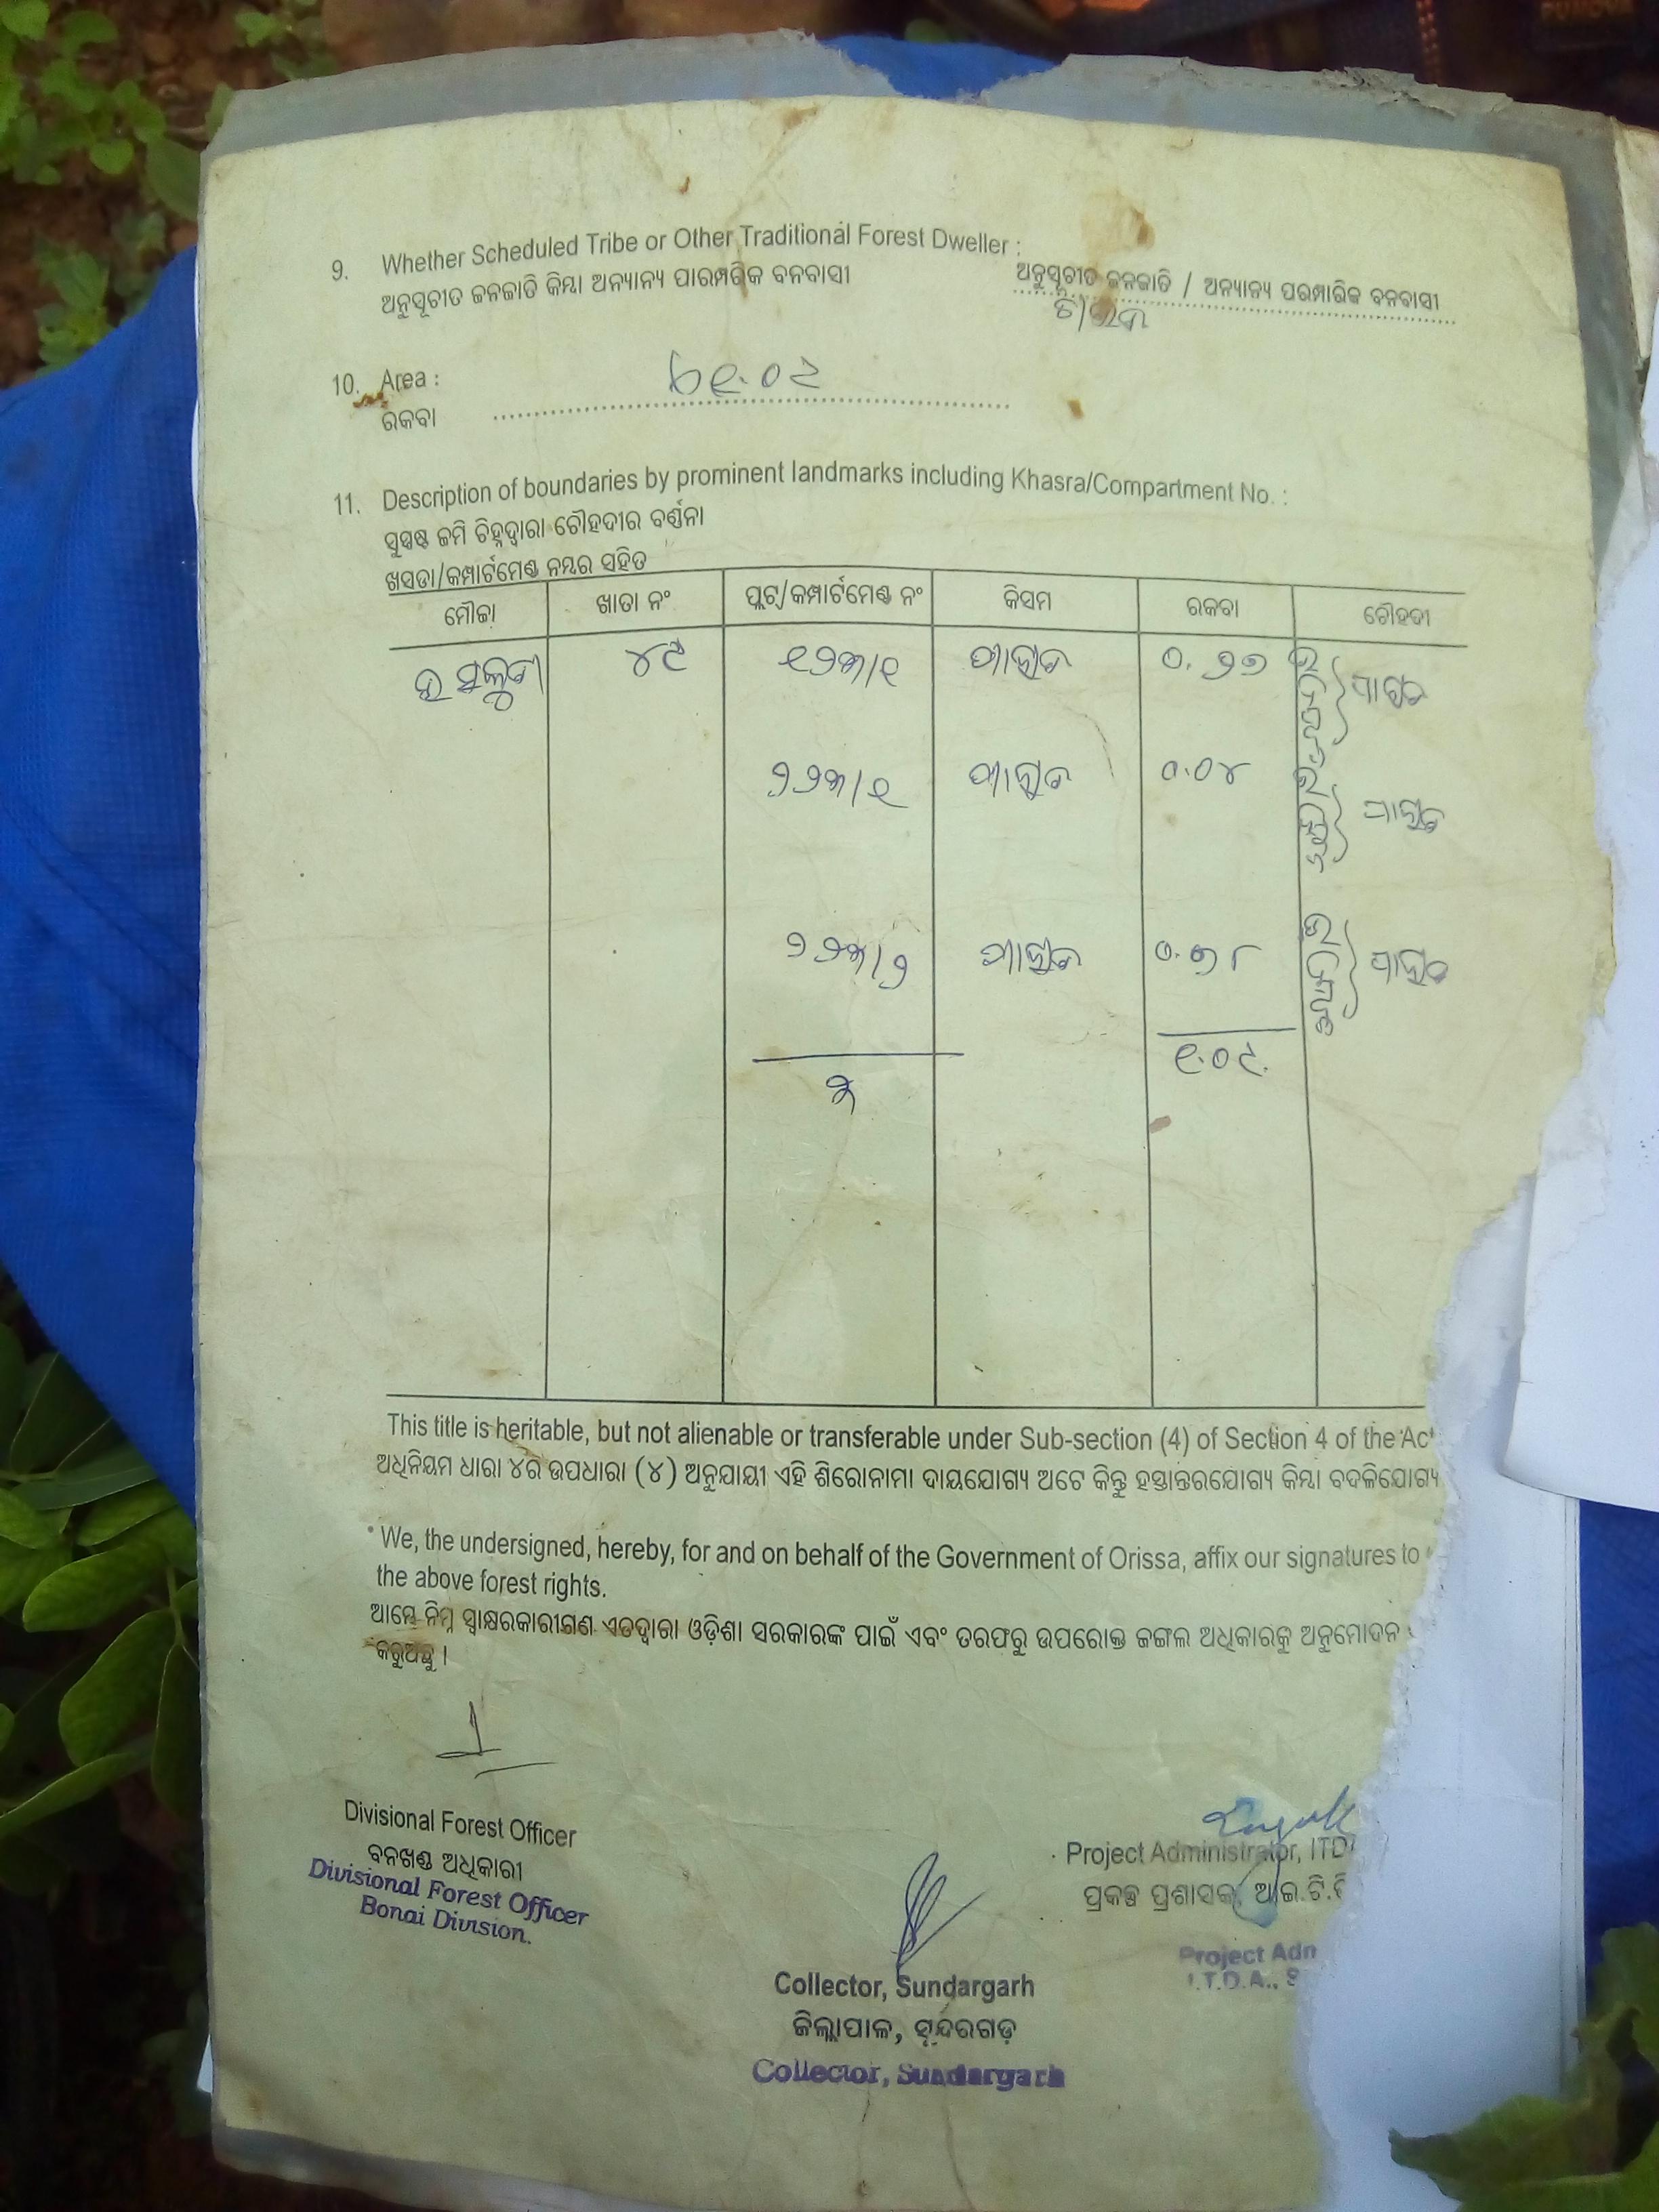 9. Whether Scheduled Tribe or Other Traditional Forest Dweller :
ଅନୁସୂଚୀତ ଜନଜାତି କିମ୍ବା ଅନ୍ୟାନ୍ୟ ପାରମ୍ପରିକ ବନବାସୀ
ଅନୁସୂଚୀତ ଜନଜାତି / ଅନ୍ୟାନ୍ୟ ପରମ୍ପାରିକ ବନବାସୀ
10. Area :
ରକବା
11. Description of boundaries by prominent landmarks including Khasra/Compartment No. :
ସୁସ୍ପଷ୍ଟ ଜମି ଚିହ୍ନଦ୍ୱାରା ଚୌହଦୀର ବର୍ଣ୍ଣନା
ଖସଡା/କମ୍ପାର୍ଟମେଣ୍ଟ ନମ୍ବର ସହିତ
ମୌଜା ଖାତା ନଂ ପ୍ଲଟ୍/କମ୍ପାର୍ଟମେଣ୍ଟ ନଂ କିସମ ରକବା ଚୌହଦୀ
୪୯ ୧୨୩/୧ ପାହାଡ ୦.୨୭ ପାହାଡ
୨୨୩/୧ ପାହାଡ ୦.୦୪ ପାହାଡ
୨୨୩/୨ ପାହାଡ ୦.୭୮ ପାହାଡ
୩ ୧.୦୯
This title is heritable, but not alienable or transferable under Sub-section (4) of Section 4 of the Act
ଅଧିନିୟମ ଧାରା ୪ର ଉପଧାରା (୪) ଅନୁଯାୟୀ ଏହି ଶିରୋନାମା ଦାୟଯୋଗ୍ୟ ଅଟେ କିନ୍ତୁ ହସ୍ତାନ୍ତରଯୋଗ୍ୟ କିମ୍ବା ବଦଳିଯୋଗ୍ୟ
We, the undersigned, hereby, for and on behalf of the Government of Orissa, affix our signatures to
the above forest rights.
ଆମ୍ଭେ ନିମ୍ନ ସ୍ୱାକ୍ଷରକାରୀଗଣ ଏତଦ୍ୱାରା ଓଡ଼ିଶା ସରକାରଙ୍କ ପାଇଁ ଏବଂ ତରଫରୁ ଉପରୋକ୍ତ ଜଙ୍ଗଲ ଅଧିକାରକୁ ଅନୁମୋଦନ
କରୁଅଛୁ ।
Divisional Forest Officer
ବନଖଣ୍ଡ ଅଧିକାରୀ
Divisional Forest Officer
Bonai Division.
Project Administrator, ITD
ପ୍ରକଳ୍ପ ପ୍ରଶାସକ, ଆଇ.ଟି.ଡି
Project Adm
I.T.D.A., S
Collector, Sundargarh
ଜିଲ୍ଲାପାଳ, ସୁନ୍ଦରଗଡ଼
Collector, Sundargarh